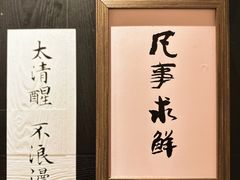 太清醒
不浪漫
凡事求鮮